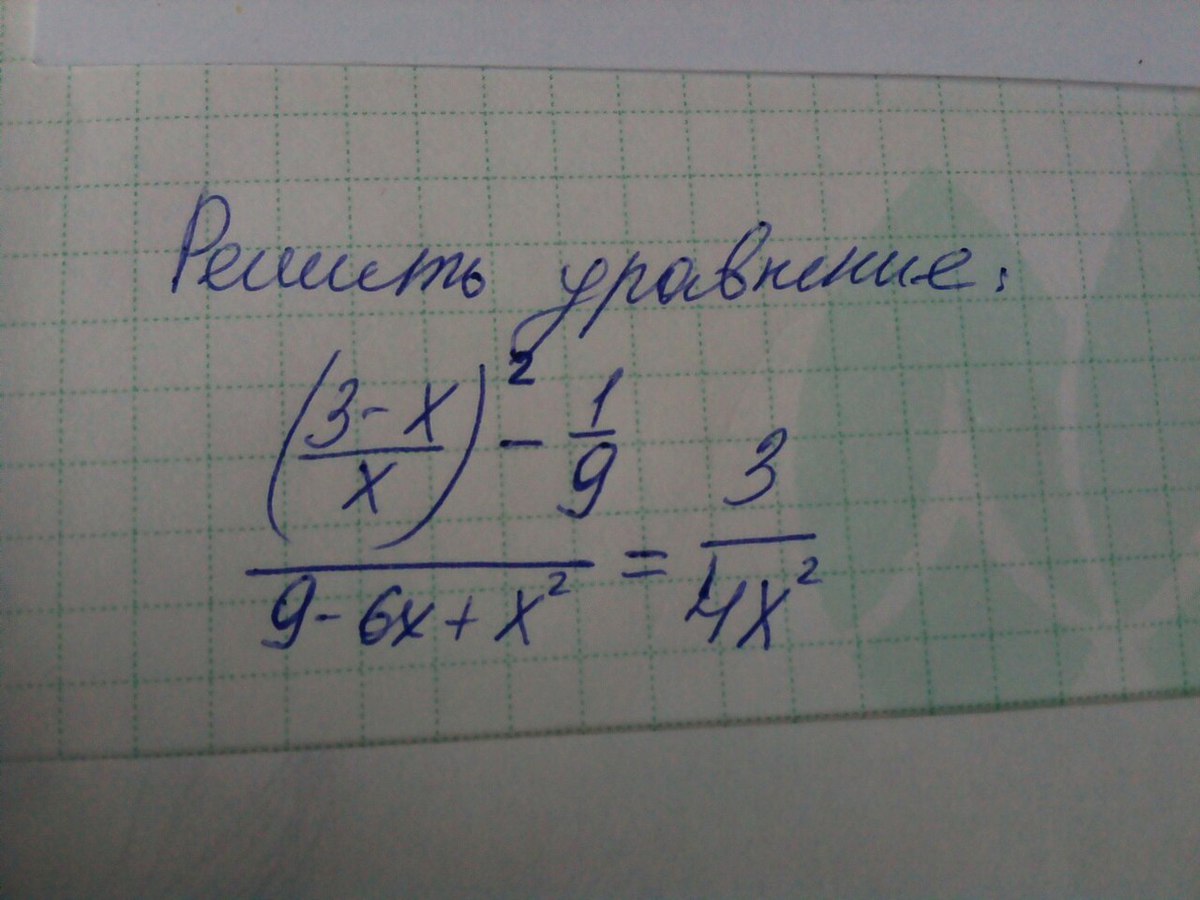 Решить уравнение:
((3-x)/x)² - 1/9
/(9-6x+x²) = 3/(4x²)